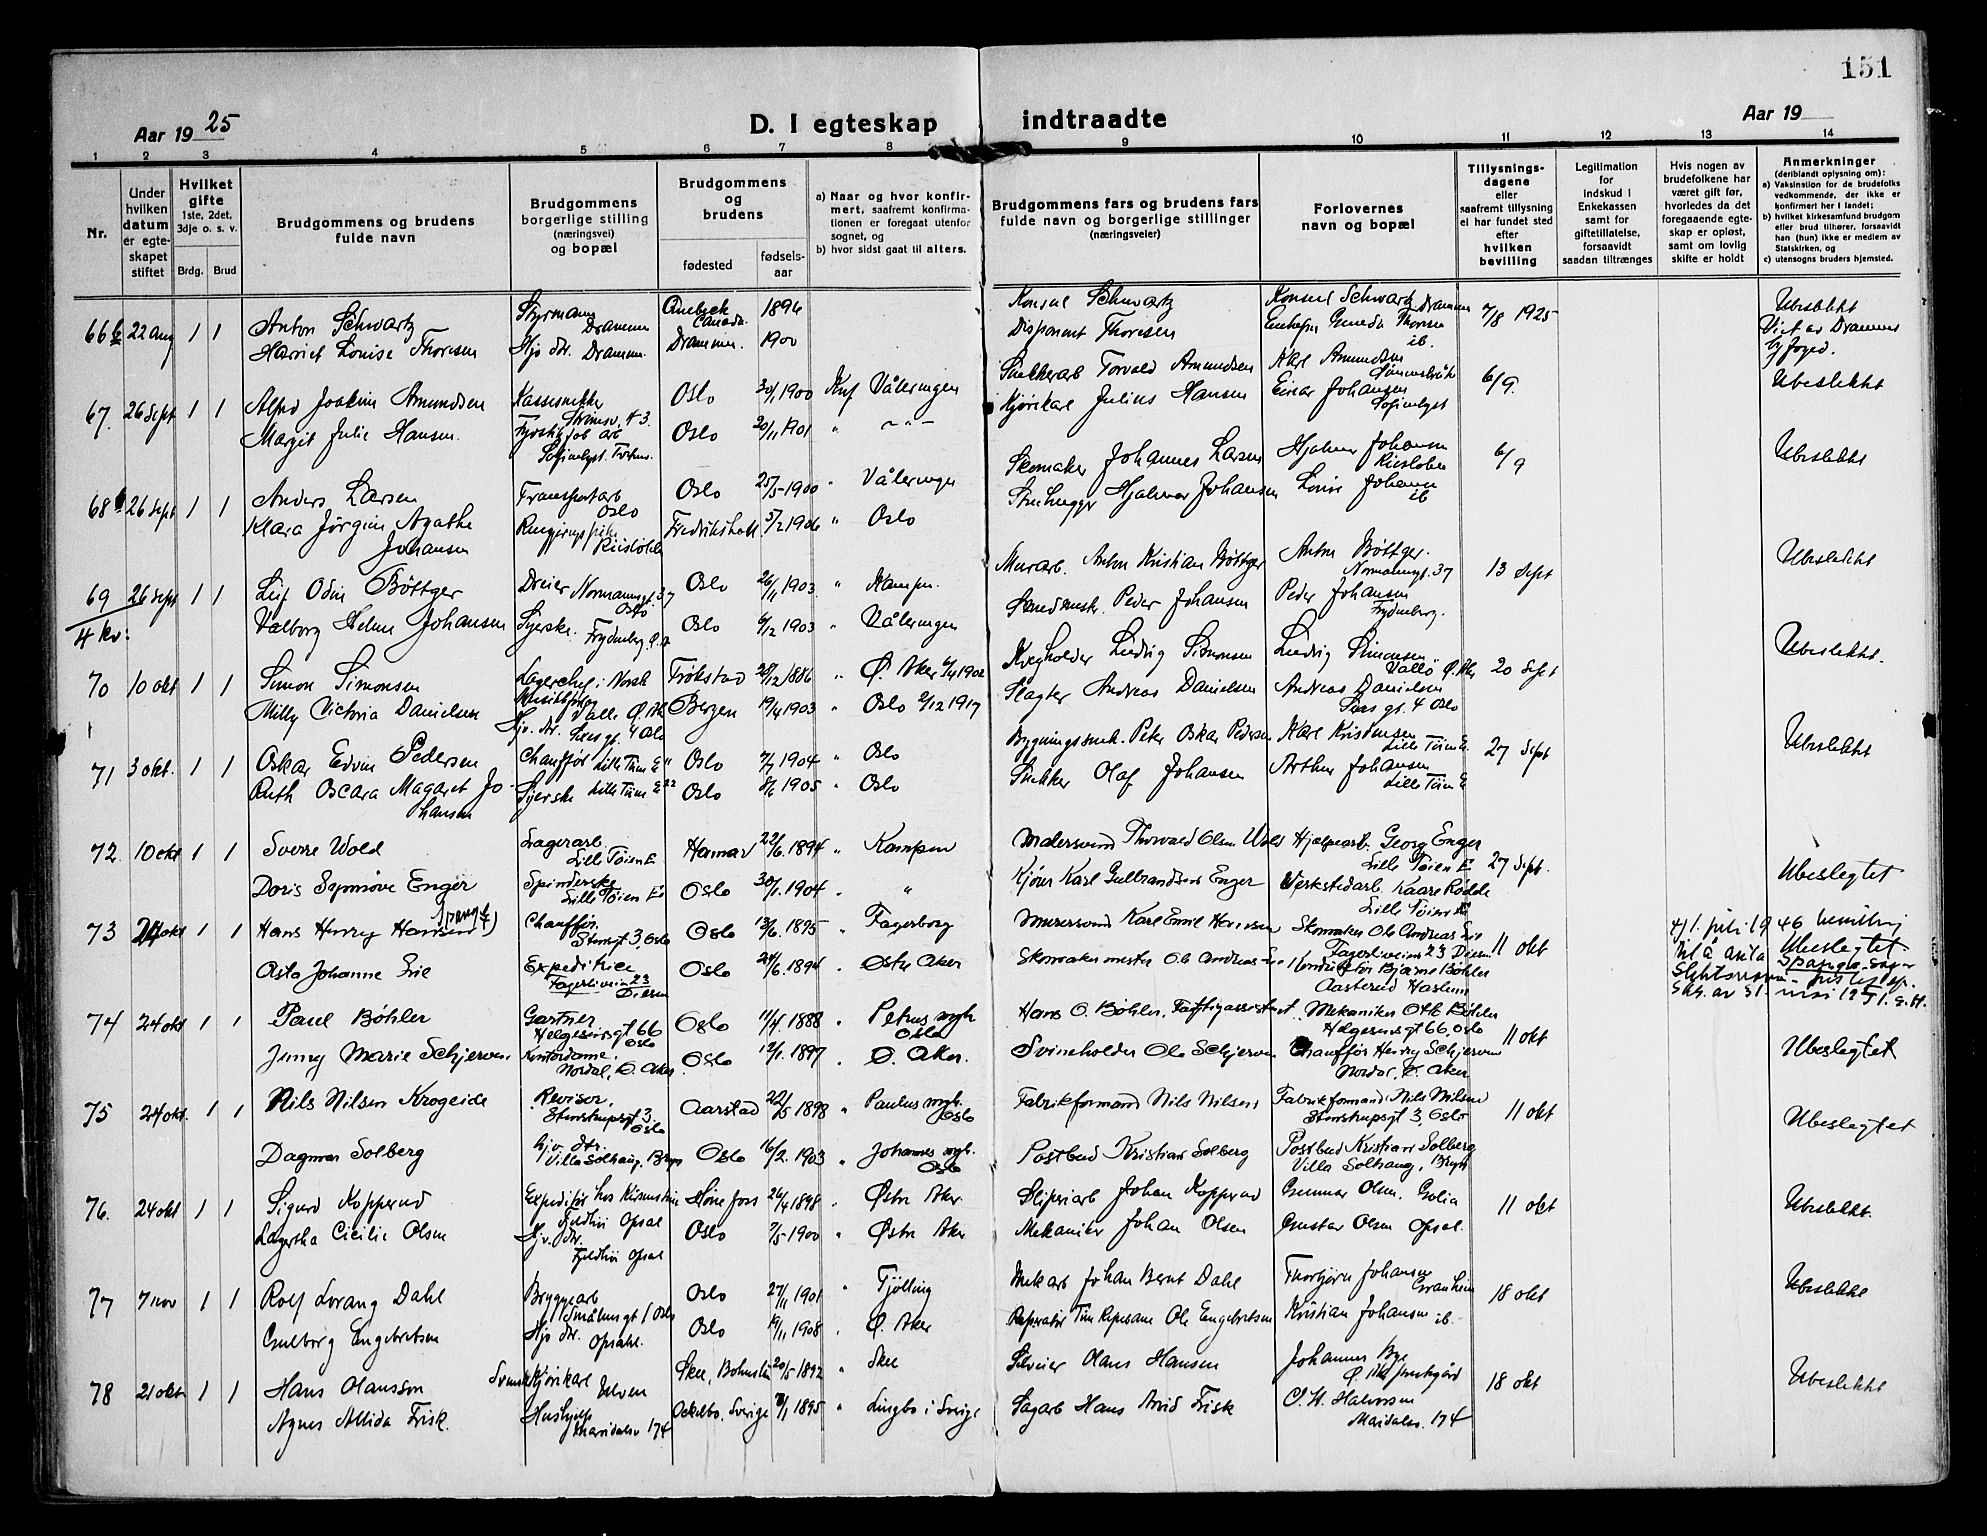 151
Aar 1925
D. I egteskap indtraadte
Aar 19
1 2 3 4 5 6 7 8 9 10 11 12 13 14
Nr.
Under hvilken datum er egteskapet stiftet
Hvilket gifte 1ste, 2det, 3dje o. s. v.
Brdg. Brud
Brudgommens og brudens fulde navn
Brudgommens borgerlige stilling (næringsvei) og bopæl
Brudgommens og brudens
fødested
fødselsaar
a) Naar og hvor konfirmert, saafremt konfirmationen er foregaat utenfor sognet, og
b) hvor sidst gaat til alters.
Brudgommens fars og brudens fars fulde navn og borgerlige stillinger (næringsveier)
Forlovernes navn og bopæl
Tillysningsdagene eller saafremt tillysning ei har fundet sted efter hvilken bevilling
Legitimation for indskud i Enkekassen samt for giftetillatelse, forsaavidt saadan tiltrænges
Hvis nogen av brudefolkene har været gift før, hvorledes da det foregaaende egteskap er opløst, samt om lovlig skifte er holdt
Anmerkninger (deriblandt oplysning om):
a) Vaksinstion for de brudefolks vedkommende, der ikke er konfirmert her i landet;
b) hvilket kirkesamfund brudgom eller brud tilhører, forsaavidt han (hun) ikke er medlem av Statskirken, og
c) utensogns bruders hjemsted.
66 b 22 aug 1 1 Anton Schwartz Styrmann Drammen Quebeck Canada 1896 Konsul Schwartz Konsul Schwartz Drammen 7/8 1925 Ubeslektt
Harriet Louise Thoresen Hjv. dtr. Drammen. Drammen. 1900 Disponent Thoresen Thoresen ib. Viet av Drammens byfoged.
67. 26 sept 1 1 Alfred Joakim Amundsen Kassesnekker Strømsv. 43 Oslo 30/1 1900 Knf Våleringen Snekkerarb Torvald Amundsen Karl Amundsen 6/9. Ubeslektt
Margit Julie Hansen. Sofienlyst. Oslo 20/11 1901 " - " - Kjørekarl Julius Hansen Einar Johansen Sofienlyst
68 26 sept 1 1 Anders Larsen Transportarb Oslo Oslo 25/5 1900 " Våleringen Skomaker Johannes Larsen Hjalmar Johansen Riisløken 6/9 Ubeslektt
Klara Jørgine Agathe Johansen Riisløkk Fredrikshald 5/2 1906 " Oslo Stenhugger Hjalmar Johansen Louise Johansen ib
69 26 sept 1 1 Leif Odin Bøttger Dreier Normannsgt. 37 Oslo Oslo 26/11 1903 " Kampen. Murarb. Anton Kristian Bøttger Anton Bøttger. Normannsgt. 37 13 sept Ubeslektt
4 kv: Valborg Helene Johansen Syerske. Frydenberg Ø. A Oslo 6/12 1903 " Våleringen Peder Johansen Peder Johansen Frydenberg.
70 10 okt 1 1 Simon Simonsen Lagerchef i Norsk Valle Ø. Ak Trøkstad 28/12 1886 " Ø. Aker 1902 Ludvig Simonsen Ludvig Simonsen Ø. Ak 20 sept Ubeslektt.
Milly Victoria Danielsen Hjv. dtr. Bergen 19/4 1903 " Oslo 2/12 1917 Slagter Andreas Danielsen Andreas Danielsen gt. 4 Oslo
71 3 okt. 1 1 Oskar Edvin Pedersen Chauffør Lille Tøien E Oslo 7/7 1904 " Oslo Bygningssnek. Peter Oskar Pedersen Karl Kristensen Lille Tøien E. 27 sept Ubeslektt
Ruth Oscara Magaret Johansen Syerske Lille Tøien E 22 Oslo 8/6 1905 " Oslo Snekker Olaf Johansen Arthur Johansen Lille Tøien E
72. 10 okt 1 1 Sverre Wold Lagerarb. Lille Tøien E Hamar 22/6. 1894 " Kampen Malersvend Thorvald Olsen Wold Hjælpearb. Georg Enger Lille Tøien E 27 sept. Ubeslegtet
Doris Synnøve Enger Spinderske Lille Tøien E Oslo 30/1. 1904. " " Kjører Karl Gulbrandsen Enger Verkstedarb. Kaare Rødde Lille Tøien E
73 24 okt 1 1 Hans Henry Hansen Spang Chauffør. Stensgt 3, Oslo Oslo 13/6. 1895 " Fagerborg Murersvend Karl Emil Hansen Skomaker Ole Andreas Lie Fagerliveien 23 11 okt Ubeslegtet
Asta Johanne Lie Expeditrice Fagerliveien 23 Oslo 24/6. 1894 " Østre Aker Skomakermester Ole Andreas Lie Konduktør Bjarne Bøhler Aasterud Haslum
1. juli 1946 til å anta Slektsnavn
74 24 okt 1 1 Paul Bøhler Gartner Helgesensgt 66 Oslo Oslo 11/4. 1888 " Petrus mgh. Oslo Hans O. Bøhler, Fattigassistent Mekaniker Otto Bøhler Helgesensgt 66, Oslo 11 okt Ubeslegtet
Jenny Marie Schjerven Kontordame. Nordal, Ø. Aker Oslo 12/1. 1897 " Ø. Aker. Svineholder Ole Schjerven Chauffør Henry Schjerven Nordal, Ø. Aker
75 24 okt. 1 1 Nils Nilsen Krogeide Revisor. Stenstrupsgt 3. Oslo Aarstad 22/5 1898 " Paulus mgh. Oslo Fabrikformand Nils Nilsen Fabrikformand Nils Nilsen Stenstrupsgt 3, Oslo 11 okt Ubeslegtet
Dagmar Solberg Hjv. dtr. Villa Solhaug, Bryn Oslo 16/2. 1903 " Johannes mgh. Oslo Postbud Kristian Solberg Postbud Kristian Solberg Villa Solhaug, Bryn
76. 24 okt 1 1 Sigurd Kopperud Expeditør Fjeldhøi Opsal Hønefoss 26/4 1898 " Østre Aker Sliperiarb Johan Kopperud Gunnar Olsen, Golia 11 okt Ubeslektt.
Lagertha Cicilie Olsen Hjv. dtr. Fjeldhøi Opsal Oslo 7/5 1900 " Østre Aker Mekaniker Johan Olsen Gustav Olsen Opsal.
77 7 nov 1 1 Rolf Lorang Dahl Bryggearb Smålensgt 1 Oslo Oslo 27/11 1901 " Tjølling Mekarb Johan Bernt Dahl Thorbjørn Johansen Granheim 18 okt Ubeslektt
Gulborg Engebretsen Hjv dtr. Opsahl. Oslo 19/11 1908 " Ø. Aker Reperatør Ole Engebretsen Kristian Johansen ib.
78 21 okt 1 1 Hans Olansson Svensk Kjørekarl Ulven Skee, Bohuslän 20/5 1892 " Skee Olans Hansen Johannes Bye 18 okt Ubeslektt
Agnes Allida Frisk. Hushjelp Maridalsv 174 Ockelbo, Sverige 1895 " Lingbo i Sverige Sagarb Hans Arvid Frisk C. W. Halvorsen Maridalsv. 174